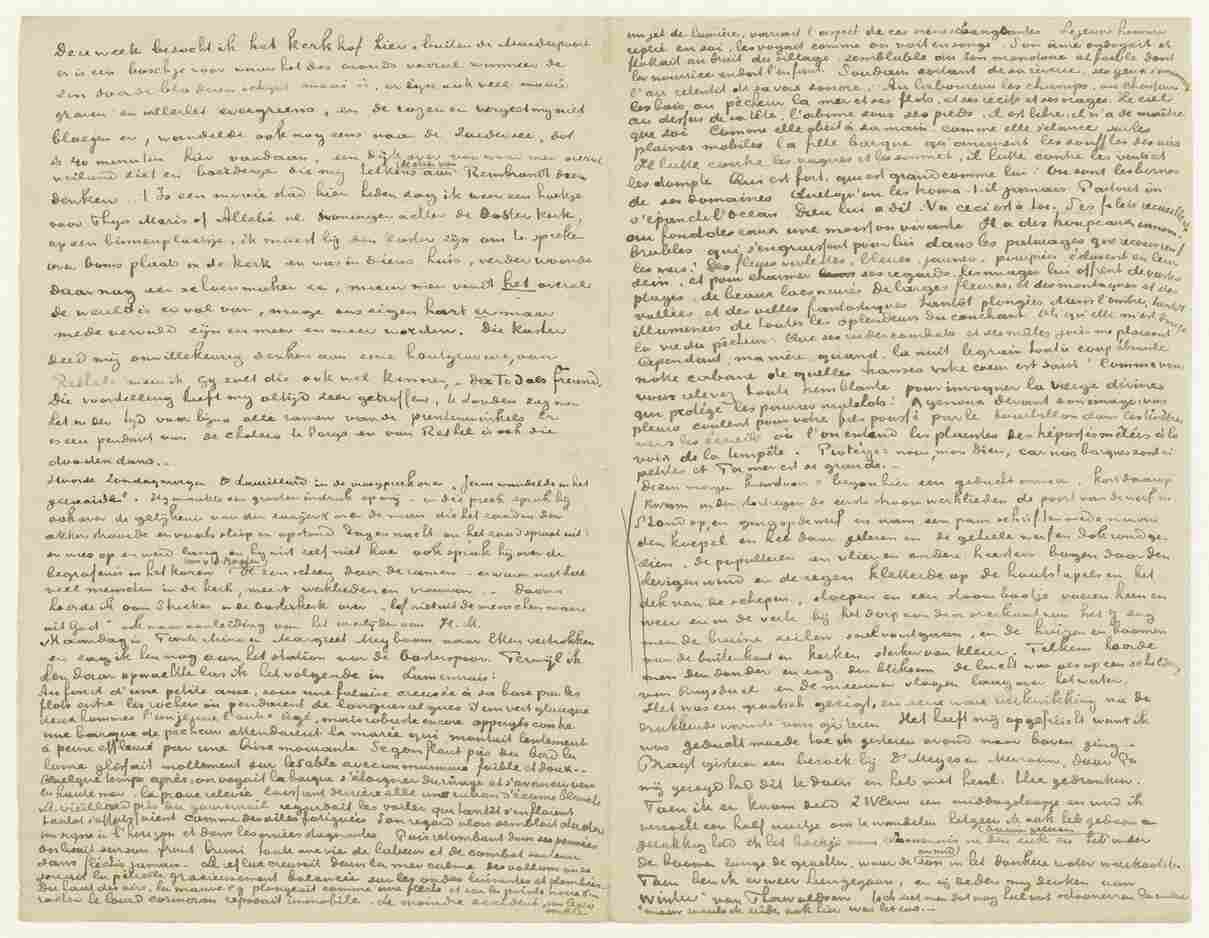 Deze week bezocht ik het kerkhof hier, buiten de Muiderpoort
er is een boschje voor waar het des avonds vooral wanneer de
zon door de bladeren schijnt mooi is, er zijn ook veel mooie
graven en allerlei evergreens, en de rozen en vergeetmijniet
bloeien er, wandelde ook nog eens naar de Zuiderzee, dat
is 40 minuten hier vandaan, een dijk over van waar men overal
weiland ziet en boerderijen die mij telkens aan etsen van Rembrandt doen
denken. 't Is een mooie stad hier heden zag ik weer een hoekje
voor Thijs Maris of Allebé nl. woningen achter de Oosterkerk,
op een binnenplaatsje, ik moest bij den koster zijn om te spreken
over booms plaats in de kerk en was in diens huis, verder woonde
daar nog een schoenmaker &c, maar men vindt het overal
de wereld is er vol van, moge ons eigen hart er maar
mede vervuld zijn en meer en meer worden. Die koster
deed mij onwillekeurig denken aan eene houtgravure, van
Rethel meen ik, gij zult die ook wel kennen, „Der Tod als Freund"
Die voorstelling heeft mij altijd zeer getroffen, te Londen zag men
het in der tijd voor bijna alle ramen van de prentenwinkels. Er
is een pendant van de cholera te Parijs en van Rethel is ook die
dooden dans.
Hoorde Zondagmorgen Ds Laurillard in de vroegpreek over „Jezus wandelde in het
gezaaide". Hij maakte een grooten indruk op mij – in die preek sprak hij
ook over de gelijkenis van den zaaijer en over de man die het zaad in den
akker strooide en voorts sliep en opstond dag en nacht en het zaad sproot uit
en wies op en werd lang en hij wist zelf niet hoe ook sprak hij over de
begrafenis in het koren van v.d. Maaten. De zon scheen door de ramen – er waren niet heel
veel menschen in de kerk, meest werklieden en vrouwen. – Daarna
hoorde ik oom Stricker in de Oosterkerk over „lof niet uit de menschen maar
uit God" ook naar aanleiding van het overlijden van H.M.
Maandag is Tante Mina en Margreet Meyboom naar Etten vertrokken
en zag ik hen nog aan het station van de Oosterspoor. Terwijl ik
hen daar opwachtte las ik het volgende in Lamennais:
Au fond d'une petite anse, sous une falaise creusée à sa base par les
flots entre les rochers où pendaient de longues algues d'un vert glauque
deux hommes l'un jeune l'autre âgé, mais robuste encore appuyés contre
une barque de pêcheur attendaient la marée qui montait lentement
à peine effleurée par une brise mourante. Se gonflant près du bord la
lame glissait mollement sur le sable avec un murmure faible et doux.
Quelque temps après, on voyait la barque s'éloigner du rivage et s'avancer vers
la haute mer, la proue relevée laissant derrière elle un ruban d'écume blanche
Le vieillard près du gouvernail regardait les voiles qui tantôt s'enflaient
tantôt s'affaissaient comme des ailes fatiguées. Son regard alors semblait chercher
un signe à l'horizon et dans les nuées stagnantes. Puis retombant dans ses pensées
on lisait sur son front bruni toute une vie de labeur et de combat soutenu
sans fléchir jamais. – Le reflux creusait dans la mer calme des vallons où se
jouait la pétrelle gracieusement balancée sur les ondes luisantes et plombées.
Du haut des airs, la mauve s'y plongeait comme une flèche et sur la pointe noire d'un
rocher le lourd cormoran reposait immobile. Le moindre accident, un léger souffle
un jet de lumière, variait l'aspect de ces scènes changeantes. Le jeune homme
replié en soi, les voyait comme on voit en songe. Son âme ondoyait et
flottait au bruit du sillage, semblable au son monotone et faible dont
la nourrice endort l'enfant. Soudain sortant de sa rêverie, ses yeux s'animent
l'air retentit de sa voix sonore: Au laboureur les champs, au chasseur
les bois, au pêcheur la mer et ses flots, et ses récifs et ses orages. Le ciel
au dessus de sa tête, l'abîme sous ses pieds, il est libre, il n'a de maître
que soi. Comme elle obéit à sa main comme elle s'élance sur les
plaines mobiles la frêle barque qu'animent les souffles de l'air
Il lutte contre les vagues et les soumet, il lutte contre les vents et
les dompte. Qui est fort, qui est grand comme lui! Où sont les bornes
de ses domaines. Quelqu'un les trouva-t-il jamais. Partout où
s'épanche l'océan Dieu lui a dit: Va ceci est à toi. Ses filets recueillent
au fond des eaux une moisson vivante. Il a des troupeaux innom-
brables qui s'engraissent pour lui dans les pâturages que recouvrent
les mers. Des fleurs violettes, bleues, jaunes, pourprées éclosent en leur
sein, et pour charmer ses regards, les nuages lui offrent de vastes
plages, de beaux lacs azurés de larges fleuves, et des montagnes et des
vallées et des villes fantastiques tantôt plongées dans l'ombre, tantôt
illuminées de toutes les splendeurs du couchant. Oh qu'elle m'est douce
la vie du pêcheur. Que ses rudes combats et ses mâles joies me plaisent
Cependant, ma mère, quand la nuit le grain tout à coup ébranle
notre cabane de quelles transes votre coeur est saisi! Comme vous
vous relevez toute tremblante pour invoquer la vierge divine
qui protège les pauvres matelots! A genoux devant son image vos
pleurs coulent pour votre fils poussé par le tourbillon dans les ténèbres
vers les écueils où l'on entend les plaintes des trépassés mêlées à la
voix de la tempête. Protégez nous, mon Dieu, car nos barques sont si
petites et Ta mer est si grande.
Dezen morgen kwart voor 5 begon hier een geducht onweer, kort daarop
kwam in den stortregen de eerste stroom werklieden de poort van de werf in.
Stond op, en ging op de werf en nam een paar schriften mede naar
den koepel en heb daar gelezen en de geheele werf en dok rondge-
zien, de populieren en vlier en andere heesters bogen door den
hevigen wind en de regen kletterde op de houtstapels en het
dek van de schepen, sloepen en een stoombootje voeren heen en
weer en in de verte bij het dorp aan den overkant van het IJ zag
men de bruine zeilen snel voortgaan, en de huizen en boomen
aan de Buitenkant en kerken sterker van kleur. Telkens hoorde
men den donder en zag den bliksem de lucht was als op een schilderij
van Ruysdael en de meeuwen vlogen laag over het water.
Het was een grootsch gezigt, en eene ware verkwikking na de
drukkende warmte van gisteren. Het heeft mij opgefrischt want ik
was geducht moede toen ik gisteren avond naar boven ging.
Bragt gisteren een bezoek bij Ds Meyes en Mevrouw, daar Pa
mij gezegd had dit te doen en heb er thee gedronken.
Toen ik er kwam deed ZWEerw een middagslaapje en werd ik
verzocht een half uurtje om te wandelen hetgeen ik ook heb gedaan en
gelukkig had ik het boekje van Lamennais in den zak en las het onder
de boomen langs de grachten, waar de avond zon in het donkere water weerkaatste.
Toen ben ik er weer heengegaan, en zij deden mij denken aan
„Winter" van Thorwaldsen
maar zooals de mide, ook hier was het zoo.